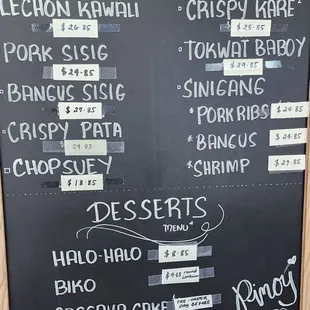 LECHON KAWALI
$26.85
PORK SISIG
$24.85
BANGUS SISIG
$27.85
CRISPY PATA
29.85
CHOPSUEY
$18.85
CRISPY KARE²
$25.85
TOKWAT BABOY
$29.85
SINIGANG
* PORK RIBS $24.85
* BANGUS $24.85
* SHRIMP $27.85
DESSERTS
MENU
HALO-HALO $8.85
BIKO
CAKE
Pinoy